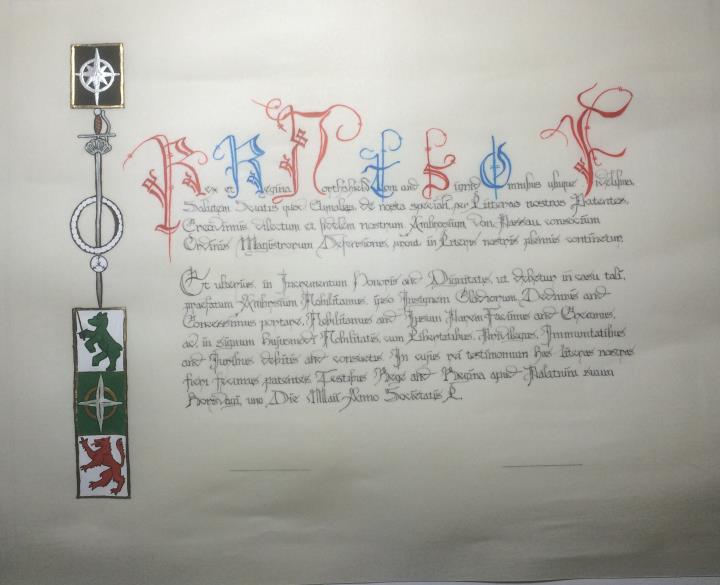 Rex et Regina and omnibus
Salutem Sciatis quod de per Litteras nostras Patentes,
Creavimus dilectum et fidelem nostrum Ambrosium von Passau, consocium
Ordinis Magistrorum Defensionis, prout in nostris plenius continetur.
Et ulterius, in Incrementum Honoris and Dignitatis, ut debetur in casu tali,
praefatum Ambrosium Nobilitamus, ipso Insignem Gladiorum, Dedimus and
Concessimus portare, Nobilitamus and Ipsum Parem Facimus and Creamus,
ac in signum hujusmodi Nobilitatis cum Libertatibus, Privilegiis, Immunitatibus
and Juribus debitis and consuetis In cujus rei testimonium has literas nostras
fieri fecimus patentes Testibus Rege and Regina apud Palatium suum
uno, Die Maii Anno Societatis L.